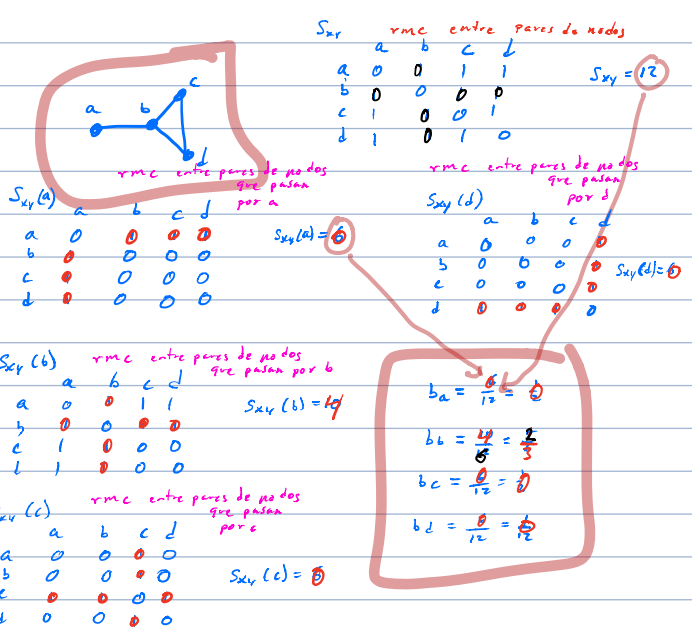 Sxy rmc entre pares de nodos
a b c d
a 0 0 1 1
b 0 0 0 0
c 1 0 0 1
d 1 0 1 0
Sxy = 12
a b c d
rmc entre pares de nodos
que pasan
por a
Sxy(a)
a b c d
a 0 0 0 0
b 0 0 0 0
c 0 0 0 0
d 0 0 0 0
Sxy(a) = 0
rmc entre pares de nodos
que pasan
por d
Sxy(d)
a b c d
a 0 0 0 0
b 0 0 0 0
c 0 0 0 0
d 0 0 0 0
Sxy(d) = 0
Sxy(b) rmc entre pares de nodos
que pasan por b
a b c d
a 0 0 1 1
b 0 0 0 0
c 1 0 0 0
d 1 0 0 0
Sxy(b) = 4
xy(c) rmc entre pares de nodos
que pasan
por c
a b c d
a 0 0 0 0
b 0 0 0 0
c 0 0 0 0
d 0 0 0 0
Sxy(c) = 0
ba = 0/12 = 0
bb = 4/6 = 2/3
bc = 0/12 = 0
bd = 0/12 = 0